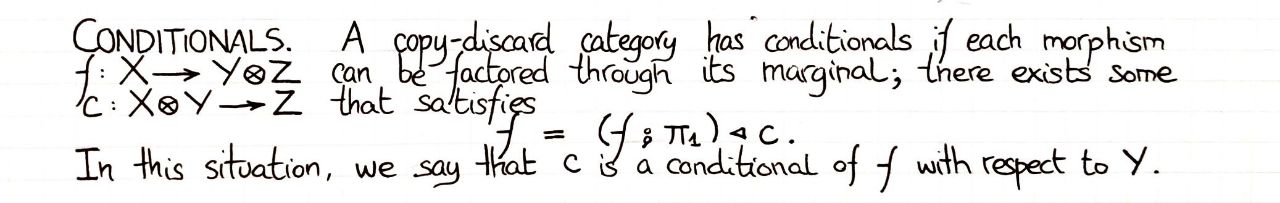 CONDITIONALS. A copy-discard category has conditionals if each morphism
f : X → Y⊗Z can be factored through its marginal; there exists some
c : X⊗Y → Z that satisfies
f = (f ; π₁) ◁ c.
In this situation, we say that c is a conditional of f with respect to Y.